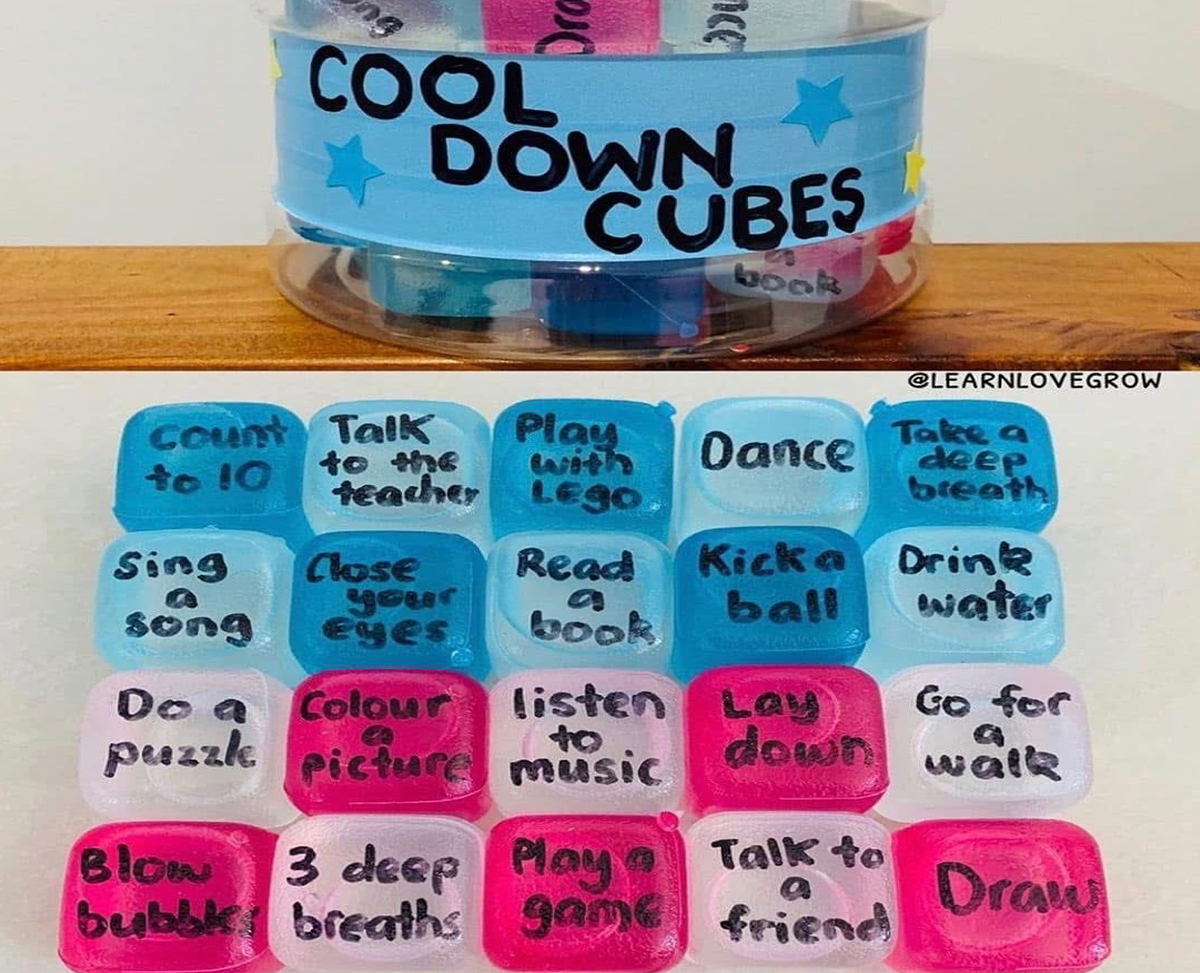 COOL
DOWN
CUBES
a
book
@LEARNLOVEGROW
Count
to 10
Talk
to the
teacher
Play
with
LEGO
Dance
Take a
deep
breath
Sing
a
song
Close
your
eyes
Read
a
book
Kick a
ball
Drink
water
Do a
puzzle
Colour
a
picture
listen
to
music
Lay
down
Go for
a
walk
Blow
bubbles
3 deep
breaths
Play a
game
Talk to
a
friend
Draw